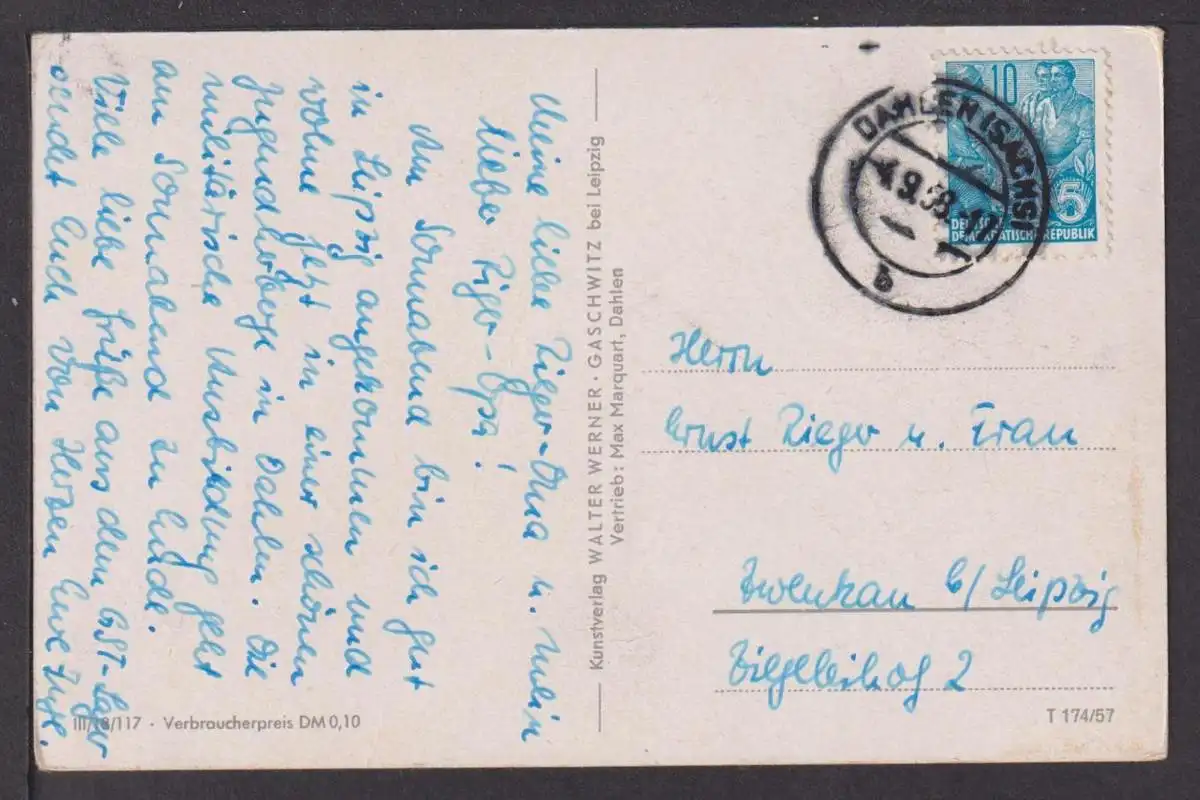 Meine liebe Rieger-Oma u. mein
lieber Rieger-Opa!
Am Sonnabend bin ich gut
in Leipzig angekommen und
wohne jetzt in einer schönen
Jugendherberge in Dahlen. Die
militärische Ausbildung geht
am Sonnabend zu Ende.
Viele liebe Grüße aus dem GST-Lager
sendet Euch von Herzen Eure
Kunstverlag WALTER WERNER · GASCHWITZ bei Leipzig
Vertrieb: Max Marquart, Dahlen
DAHLEN (SACHS)
4.9.58
b
10
5
DEUTSCHE
DEMOKRATISCHE REPUBLIK
Herrn
Ernst Rieger u. Frau
Zwenkau b/Leipzig
Ziegeleihof 2
III/18/117 · Verbraucherpreis DM 0,10
T 174/57